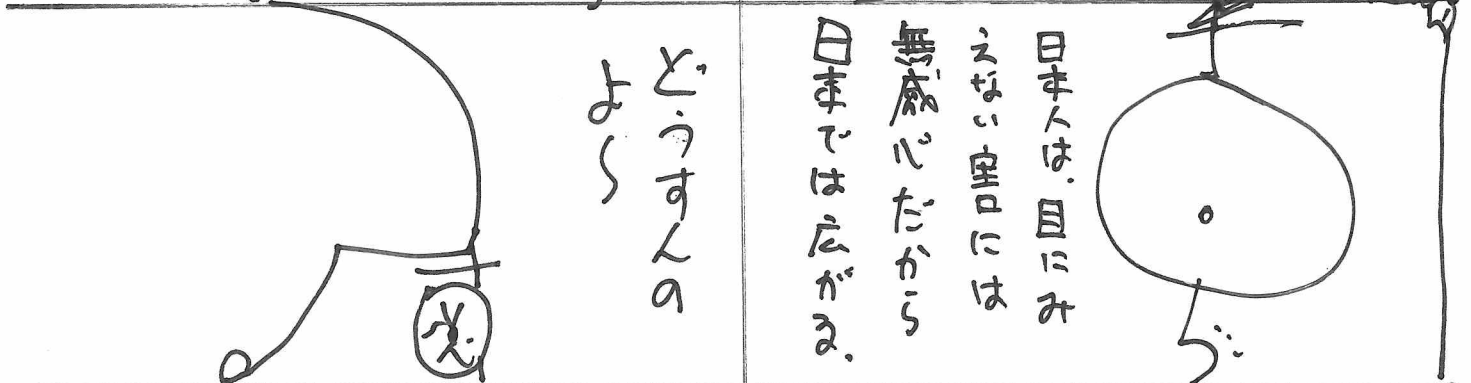 日本人は、目にみ
えない害には
無感心だから
日本では広がる、
どうすんの
よ〜